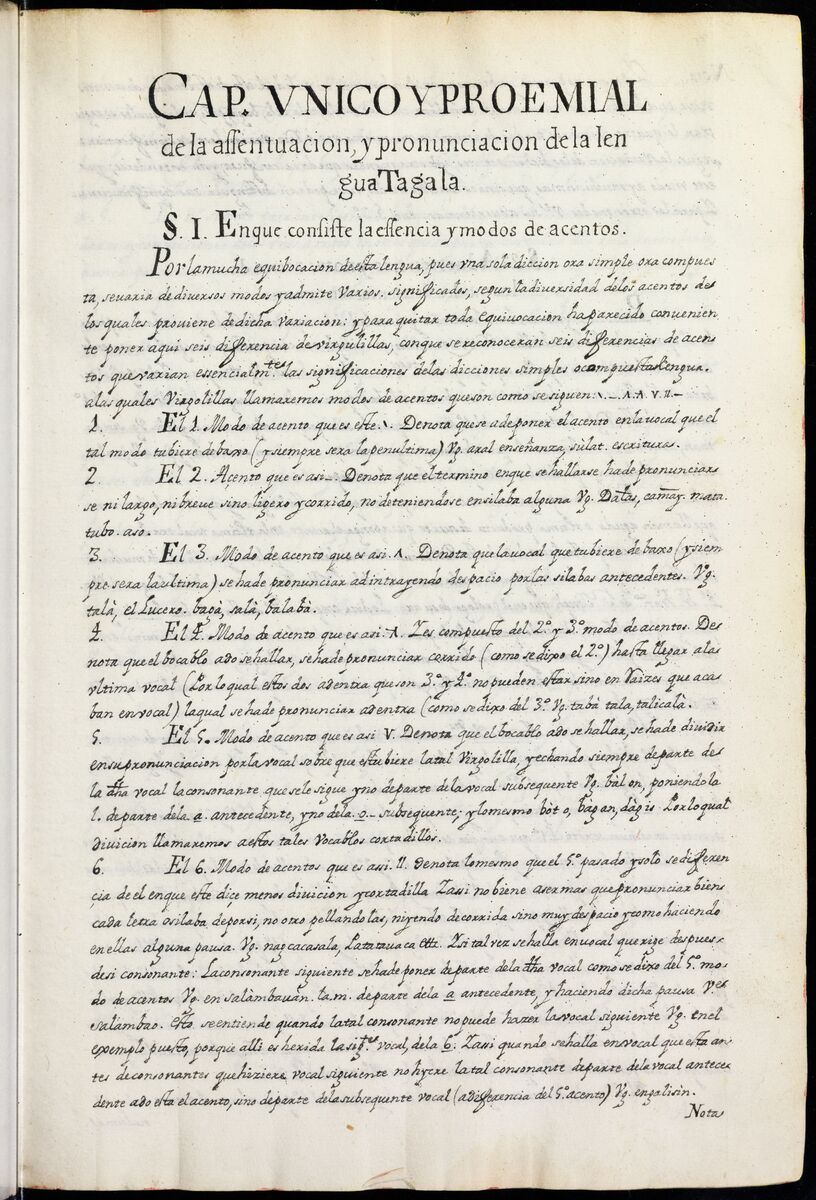 CAP. VNICO Y PROEMIAL
de la assentuacion, y pronunciacion de la len
gua Tagala.
§. I. En que consiste la essencia y modos de acentos.
Por la mucha equibocacion de esta lengua, pues vna sola diccion ora simple ora compues
ta, se varia de diversos modos y admite varios. significados, segun la diversidad de los acentos de
los quales proviene de dicha variacion: y para quitar toda equivocacion ha parecido convenien
te poner aqui seis differencia de virgulillas, con que se reconoceran seis differencias de acen
tos que varian essencialmtes las significaciones de las dicciones simples o compuestas
a las quales Virgolillas llamaremos modos de acentos que son como se siguen \ _ ʌ. ʌ. v. ıı. –
1. El 1. Modo de acento que es este \. Denota que se a de poner el acento en la vocal que el
tal modo tubiere de baxo (y siempre sera la penultima) Vg. aral enseñanza, sulat. escritura.
2. El 2. Acento que es asi _. Denota que el termino en que se hallarse ha de pronunciar
se ni largo, ni breve sino ligero y corrido, no deteniendose en silaba alguna Vg. Datas, camay. mata.
tubo. aso.
3. El 3. Modo de acento que es asi. ʌ. Denota que la vocal que tubiere de baxo (y siem
pre sera la vltima) se ha de pronunciar adintrayendo despacio por las silabas antecedentes. Vg.
talà, el Lucero. baçà, salà, balabà.
4. El 4. Modo de acento que es asi .ʌ. Y es compuesto del 2.º y 3.º modo de acentos. De
nota que el bocablo ado se hallar, se ha de pronunciar corrido (como se dixo el 2.º) hasta llegar a la
vltima vocal (Por lo qual estos dos adentra que son 3.º y 4.º no pueden estar sino en raizes que aca
ban en vocal) la qual se ha de pronunciar adentra (como se dixo del 3.º Vg. tabà tala, talicalà.
5. El 5. Modo de acento que es asi V. Denota que el bocablo ado se hallar, se ha de dividir
en su pronunciacion por la vocal sobre que estubiere la tal Virgolilla, y echando siempre de parte de
la dha vocal la consonante que se le sigue y no de parte de la vocal subsequente Vg. bàl on, poniendo la
l. de parte de la a. antecedente, y no de la o_ subsequente; y lo mesmo bòt o, bàg an, dàg is. Por lo qual
divicion llamaremos a estos tales Vocablos cortadillos.
6. El 6. Modo de acentos que es assi. ıı. Denota lo mesmo que el 5.º pasado y solo se differen
cia de el en que este dice menos divicion y cortadilla Y assi no biene a ser mas que pronunciar bien
cada letra o silaba de por si, no otro pellandolas, ni yendo de corrida sino muy despacio y como haciendo
en ellas alguna pausa. Vg. nagcacasala, Y si tal vez se halla en vocal que rige despues
de si consonante: La consonante siguiente se ha de poner de parte de la dha vocal como se dixo del 5.º mo
do de acentos Vg. en salàmbauan. la m. de parte de la a antecedente, y haciendo dicha pausa
salambao. esto se entiende quando la tal consonante no puede hazer la vocal siguiente Vg. en el
exemplo puesto, porque alli es herida la sigte vocal, de la b. Y assi quando se halla en vocal que esta an
tes de consonantes que hiziere vocal siguiente no hyere la tal consonante de parte de la vocal antece
dente ado esta el acento, sino de parte de la subsequente vocal (a differencia del 5.º acento) Vg. engalisin.
Nota